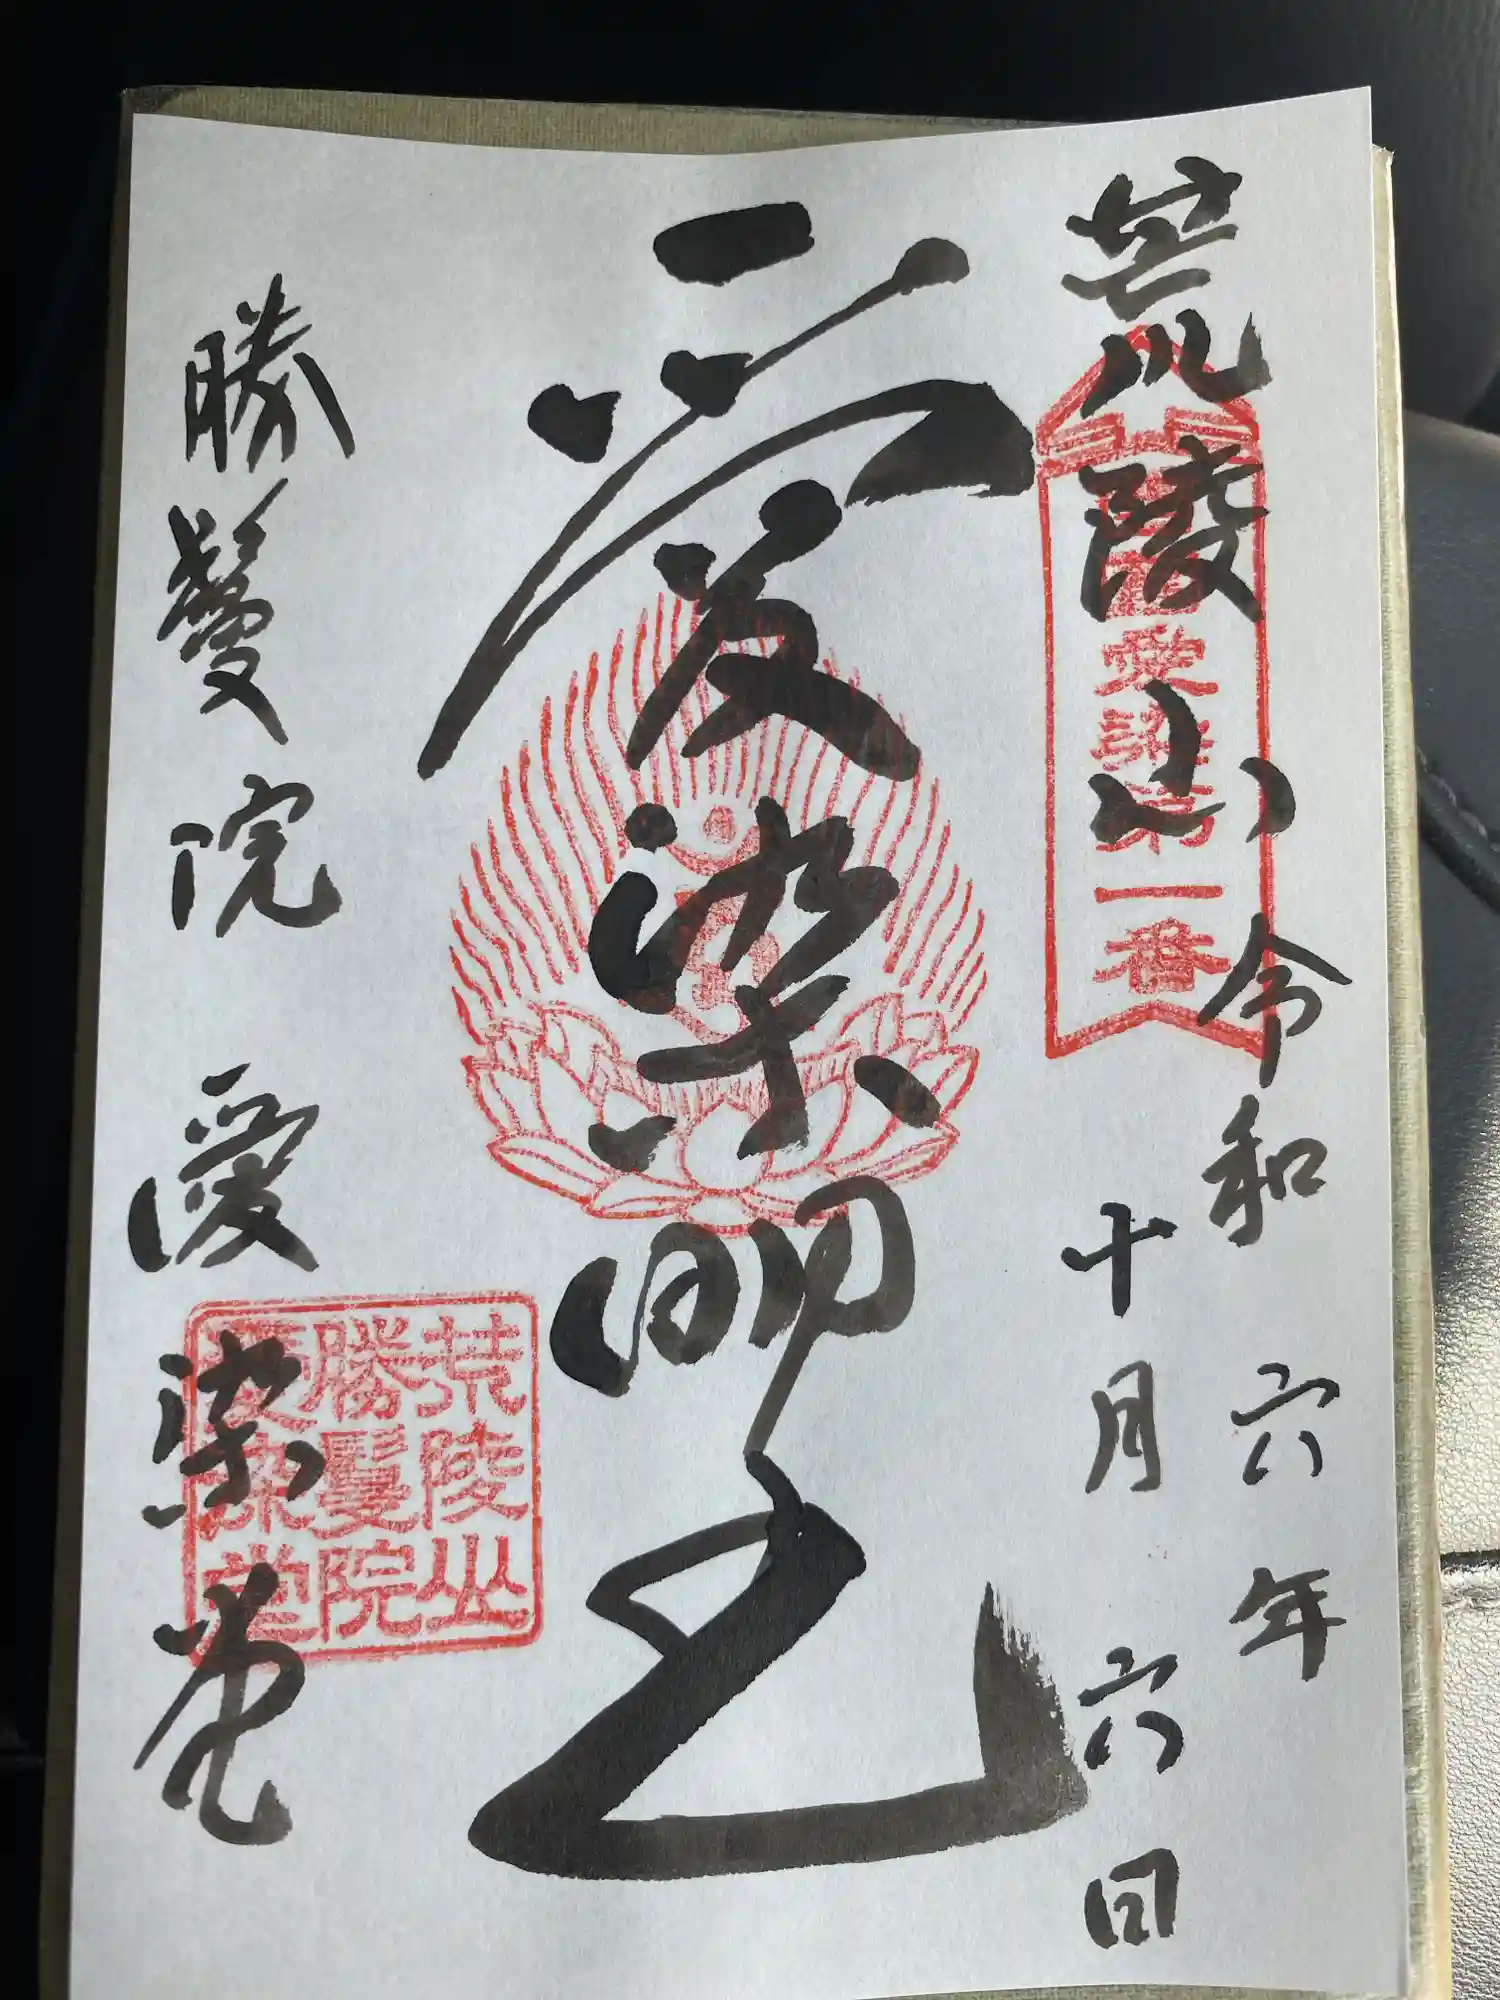 荒陵山
令和六年
十月六日
西国愛染第一番
愛染明王
勝鬘院
愛染堂
荒陵山
勝鬘院
愛染堂